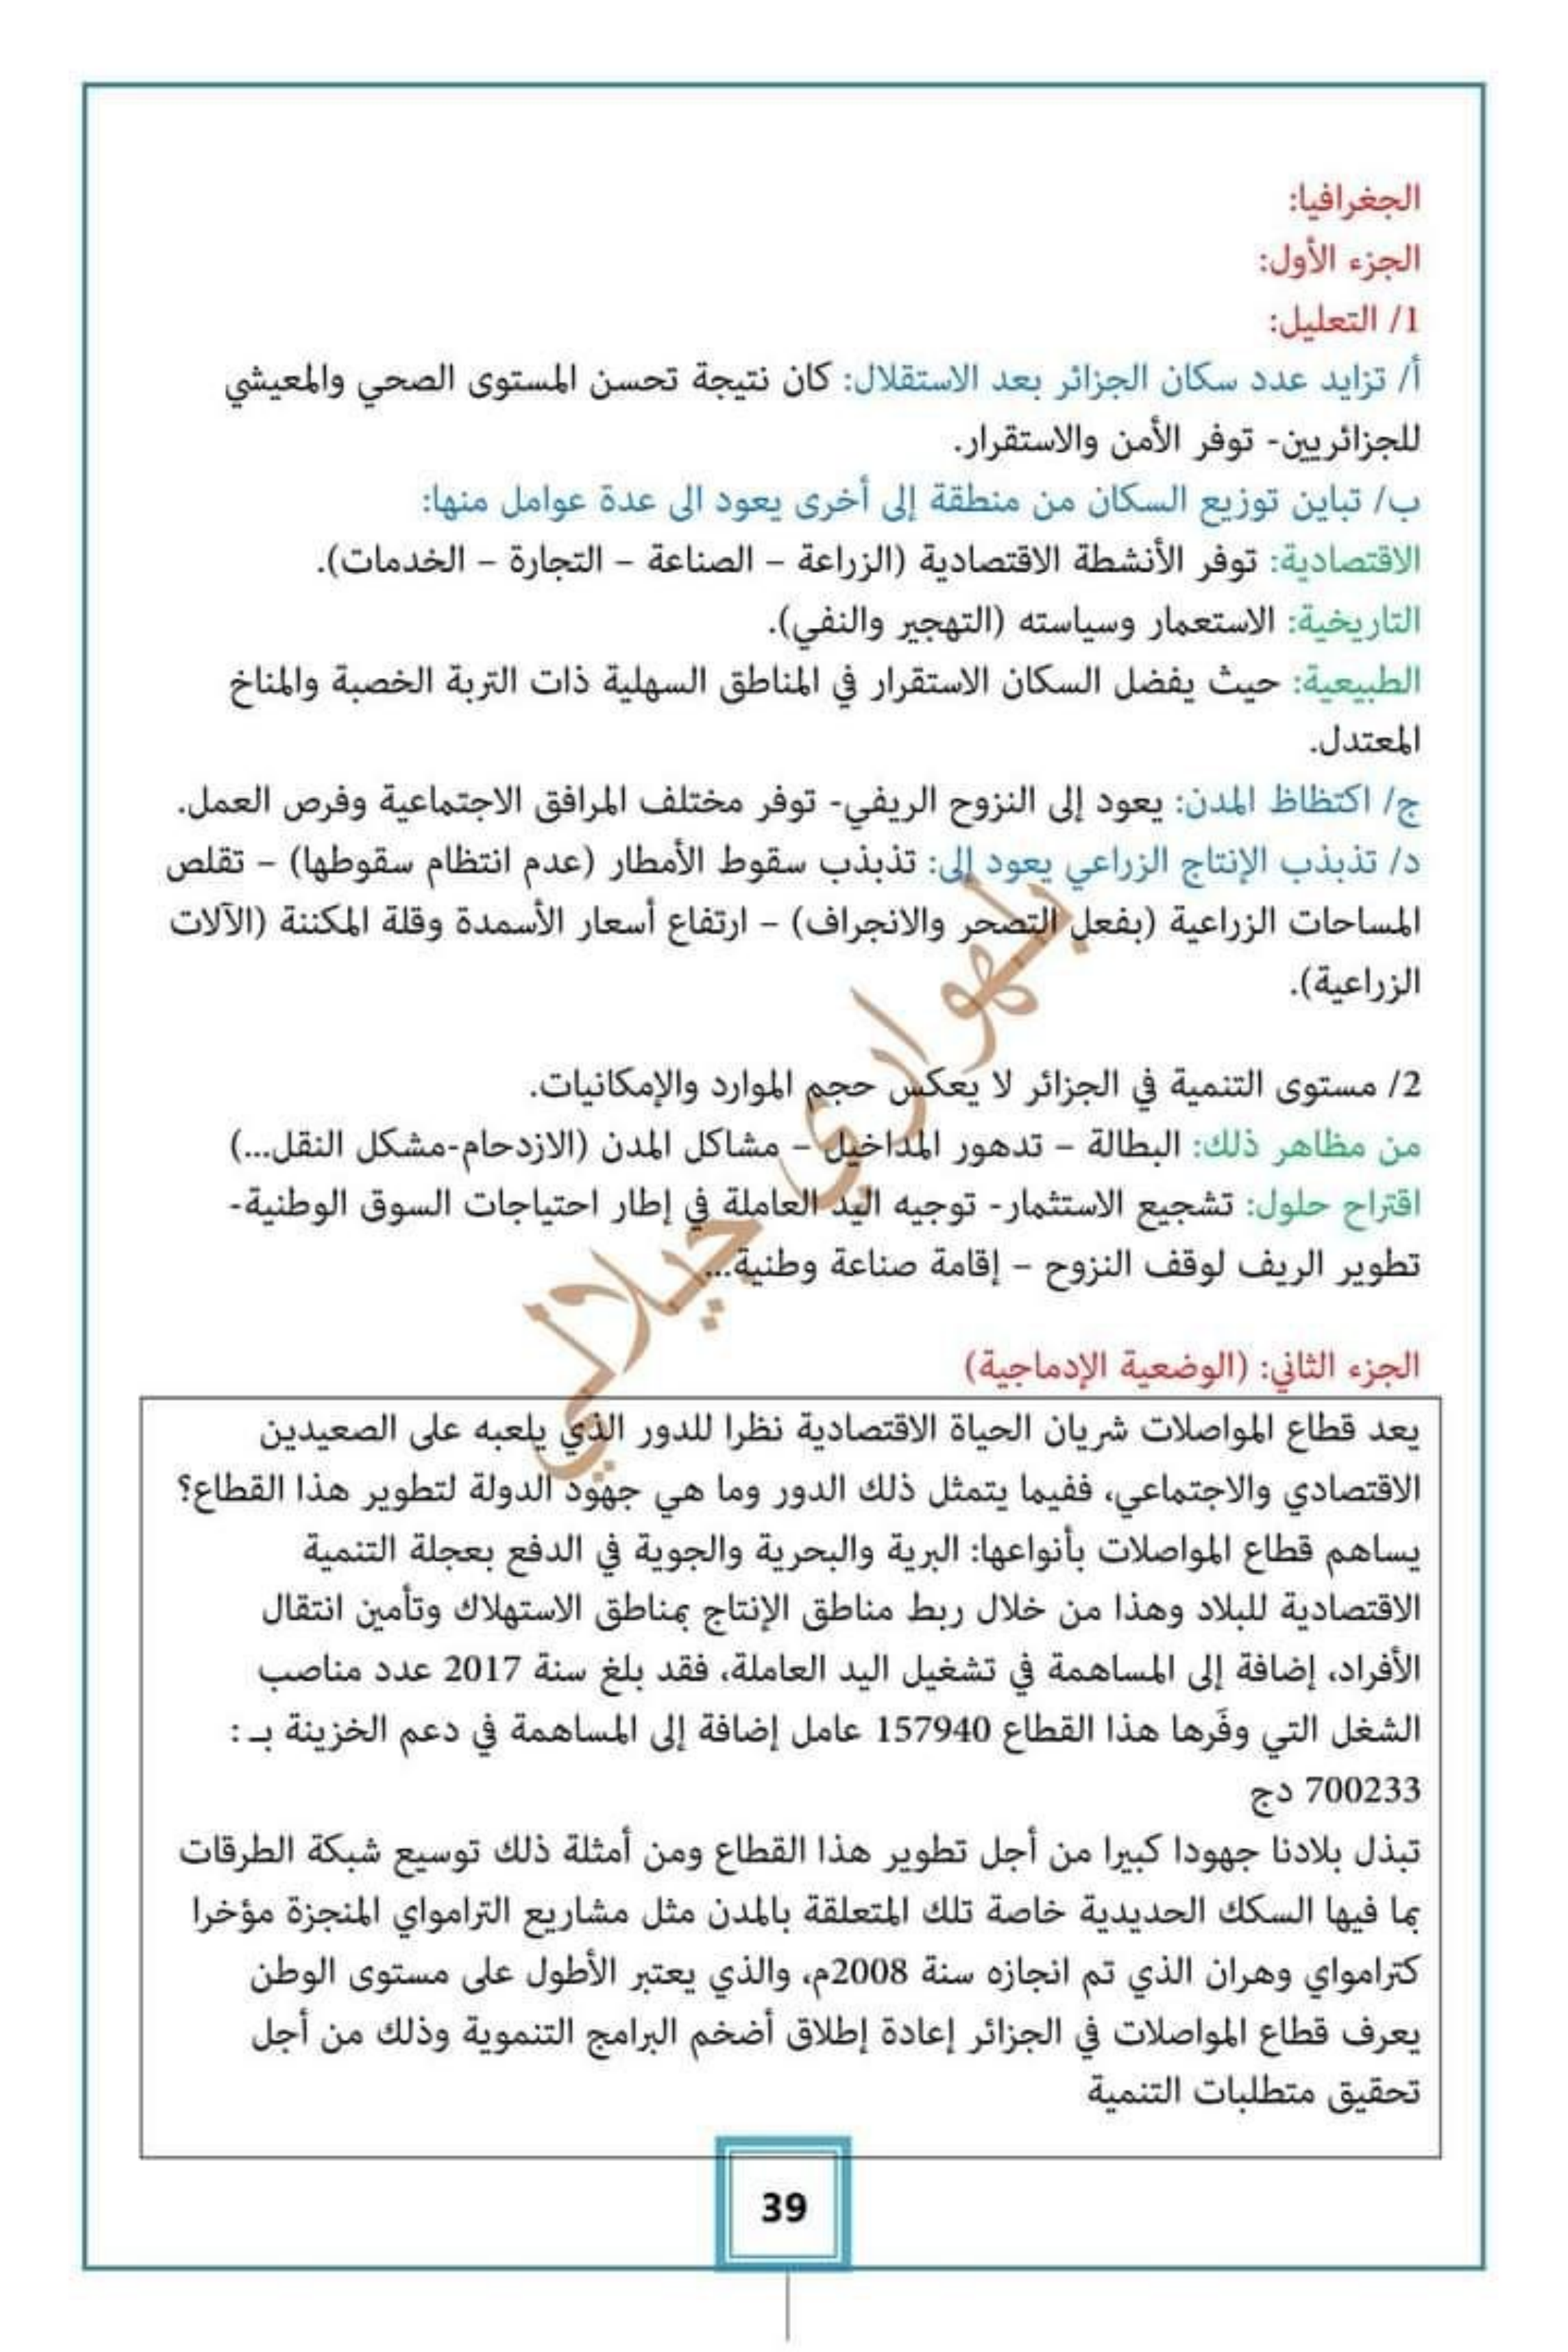 الجغرافيا:
الجزء الأول:
1/ التعليل:
أ/ تزايد عدد سكان الجزائر بعد الاستقلال: كان نتيجة تحسن المستوى الصحي والمعيشي
للجزائريين- توفر الأمن والاستقرار.
ب/ تباين توزيع السكان من منطقة إلى أخرى يعود الى عدة عوامل منها:
الاقتصادية: توفر الأنشطة الاقتصادية (الزراعة – الصناعة – التجارة – الخدمات).
التاريخية: الاستعمار وسياسته (التهجير والنفي).
الطبيعية: حيث يفضل السكان الاستقرار في المناطق السهلية ذات التربة الخصبة والمناخ
المعتدل.
ج/ اكتظاظ المدن: يعود إلى النزوح الريفي- توفر مختلف المرافق الاجتماعية وفرص العمل.
د/ تذبذب الإنتاج الزراعي يعود إلى: تذبذب سقوط الأمطار (عدم انتظام سقوطها) – تقلص
المساحات الزراعية (بفعل التصحر والانجراف) – ارتفاع أسعار الأسمدة وقلة المكننة (الآلات
الزراعية).
2/ مستوى التنمية في الجزائر لا يعكس حجم الموارد والإمكانيات.
من مظاهر ذلك: البطالة – تدهور المداخيل – مشاكل المدن (الازدحام-مشكل النقل...)
اقتراح حلول: تشجيع الاستثمار- توجيه اليد العاملة في إطار احتياجات السوق الوطنية-
تطوير الريف لوقف النزوح – إقامة صناعة وطنية...
بلهواري جيلالي
الجزء الثاني: (الوضعية الإدماجية)
يعد قطاع المواصلات شريان الحياة الاقتصادية نظرا للدور الذي يلعبه على الصعيدين
الاقتصادي والاجتماعي، ففيما يتمثل ذلك الدور وما هي جهود الدولة لتطوير هذا القطاع؟
يساهم قطاع المواصلات بأنواعها: البرية والبحرية والجوية في الدفع بعجلة التنمية
الاقتصادية للبلاد وهذا من خلال ربط مناطق الإنتاج بمناطق الاستهلاك وتأمين انتقال
الأفراد، إضافة إلى المساهمة في تشغيل اليد العاملة، فقد بلغ سنة 2017 عدد مناصب
الشغل التي وفَرها هذا القطاع 157940 عامل إضافة إلى المساهمة في دعم الخزينة بـ :
700233 دج
تبذل بلادنا جهودا كبيرا من أجل تطوير هذا القطاع ومن أمثلة ذلك توسيع شبكة الطرقات
بما فيها السكك الحديدية خاصة تلك المتعلقة بالمدن مثل مشاريع الترامواي المنجزة مؤخرا
كترامواي وهران الذي تم انجازه سنة 2008م، والذي يعتبر الأطول على مستوى الوطن
يعرف قطاع المواصلات في الجزائر إعادة إطلاق أضخم البرامج التنموية وذلك من أجل
تحقيق متطلبات التنمية
39